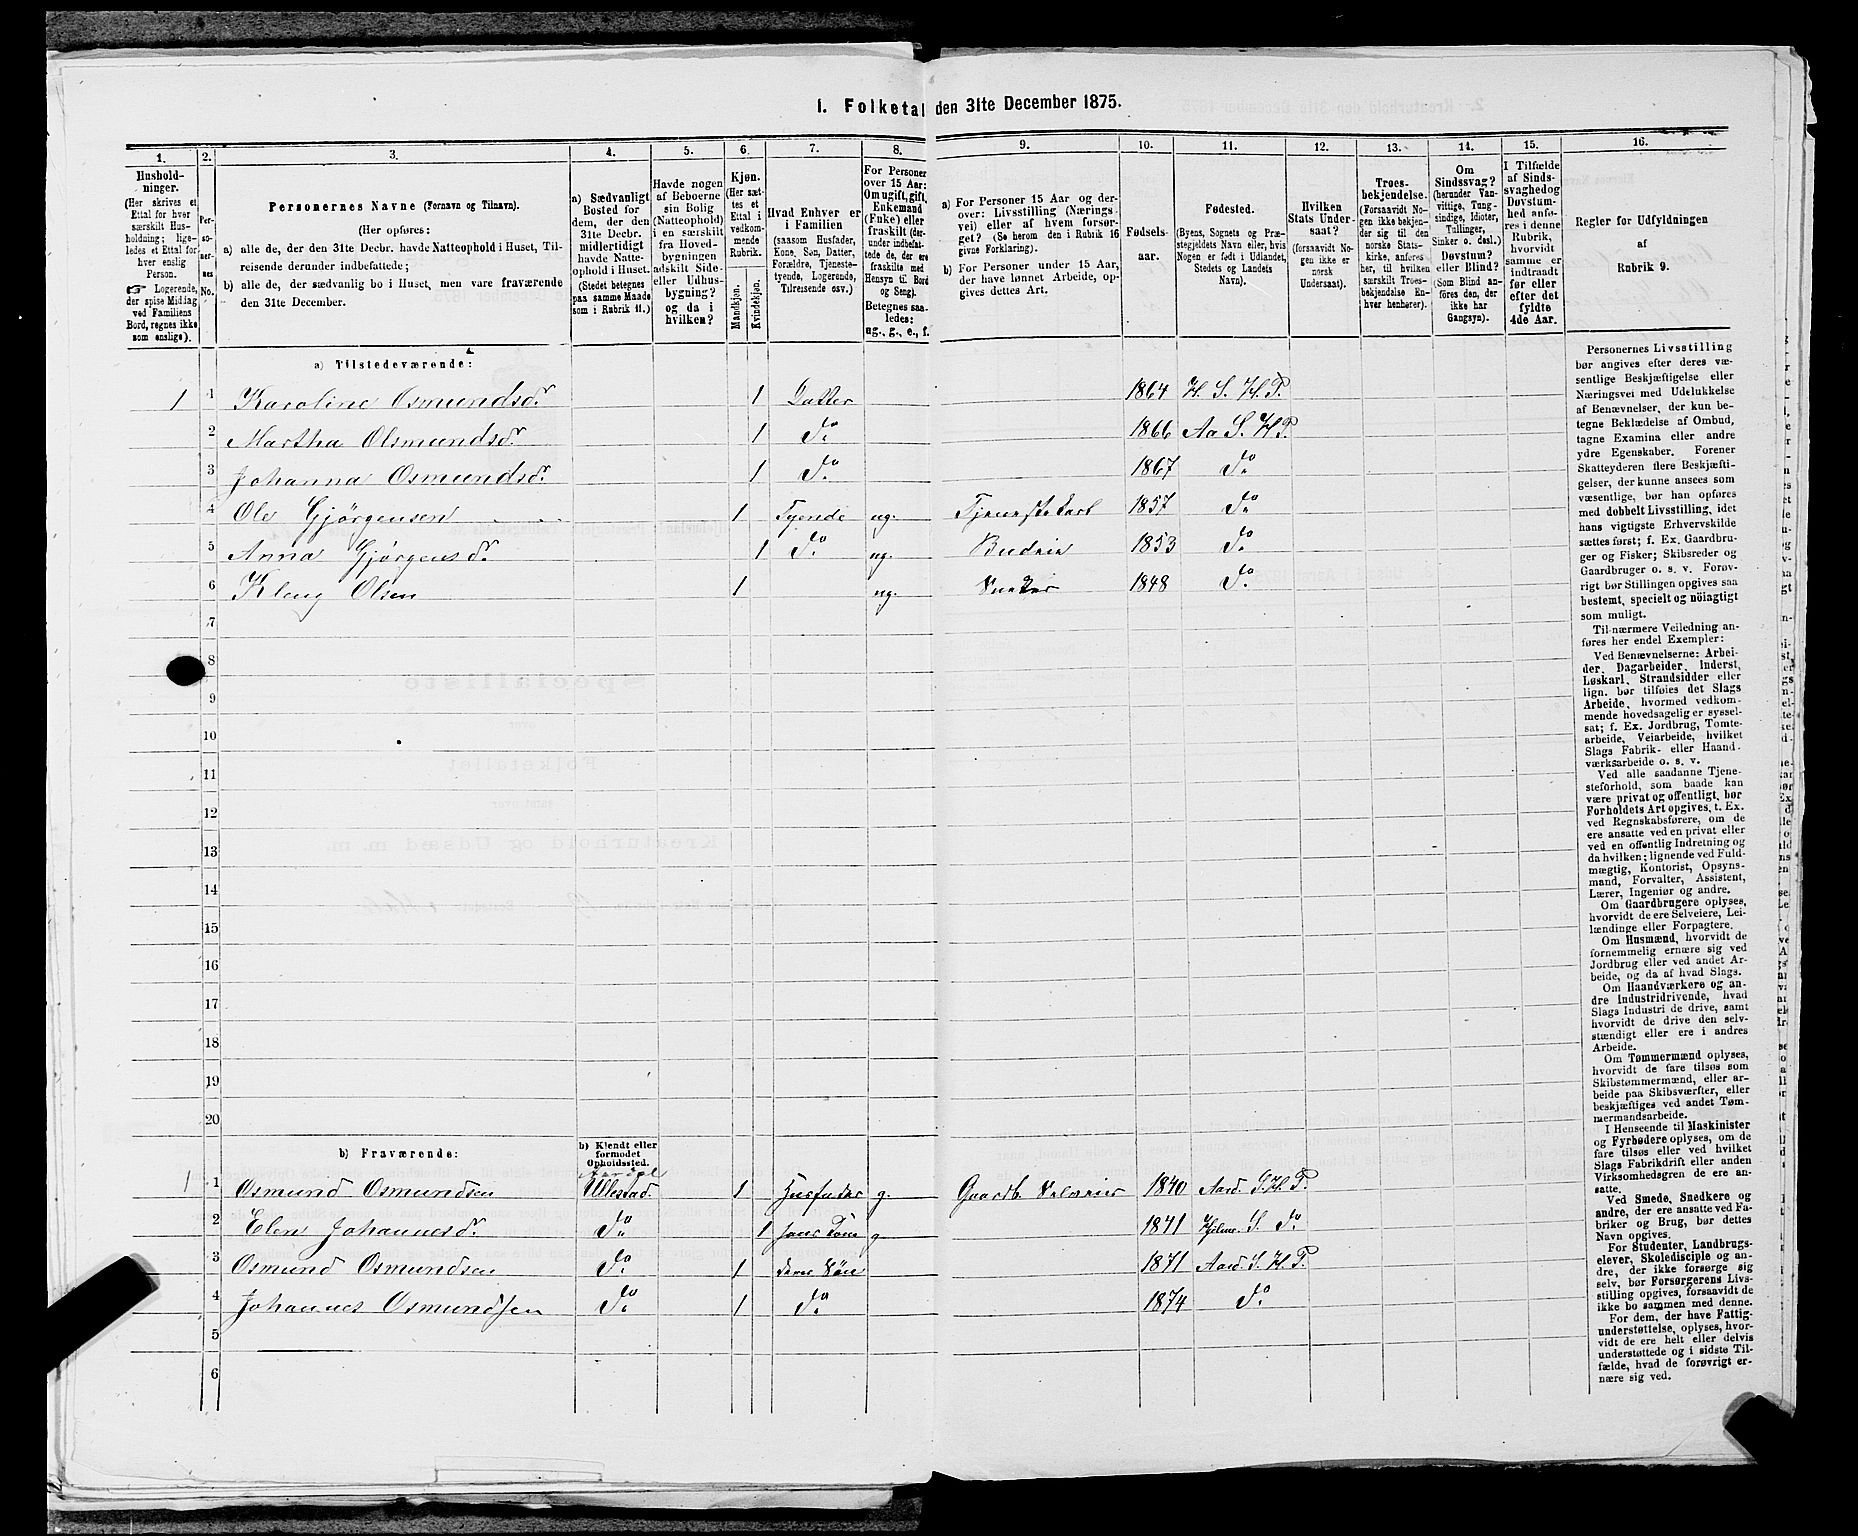 1. Folketal den 31te December 1875.
1. 2. 3. 4. 5. 6. 7. 8. 9. 10. 11. 12. 13. 14. 15. 16.
Hushold-
ninger.
(Her skrives et
Ettal for hver
særskilt Hus-
holdning; lige-
ledes et Ettal for
hver enslig
Person.
☞ Logerende,
der spise Middag
ved Familiens
Bord, regnes ikke
som enslige).
Per-
so-
ner-
nes
No.
Personernes Navne (Fornavn og Tilnavn).
(Her opføres:
a) alle de, der den 31te Decbr. havde Natteophold i Huset, Til-
reisende derunder indbefattede;
b) alle de, der sædvanlig bo i Huset, men vare fraværende
den 31te December.
a) Sædvanligt
Bosted for
dem, der den
31te Decbr.
midlertidigt
havde Natte-
ophold i Huset.
(Stedet betegnes
paa samme Maade
som i Rubrik 11.)
Havde nogen
af Beboerne
sin Bolig
(Natteophold)
i en særskilt
fra Hoved-
bygningen
adskilt Side-
eller Udhus-
bygning?
og da i
hvilken?
Kjøn.
(Her sæt-
tes et
Ettal i
vedkom-
mende
Rubrik.
Mandkjøn.
Kvindekjøn.
Hvad Enhver er
i Familien
(saasom Husfader,
Kone, Søn, Datter,
Forældre, Tjeneste-
tyende, Logerende,
Tilreisende osv.)
For Personer
over 15 Aar:
Om ugift, gift,
Enkemand
(Enke) eller
fraskilt (der-
under indbefat-
tede de, der ere
fraskilte med
Hensyn til Bord
og Seng).
Betegnes saa-
ledes:
ug., g., e., f.
a) For Personer 15 Aar og der-
over: Livsstilling (Nærings-
vei) eller af hvem forsør-
get? (Se herom den i Rubrik 16
givne Forklaring).
b) For Personer under 15 Aar,
der have lønnet Arbeide, op-
gives dettes Art.
Fødsels-
aar.
Fødested.
(Byens, Sognets og Præ-
stegjeldets Navn eller, hvis
Nogen er født i Udlandet,
Stedets og Landets
Navn).
Hvilken
Stats Under-
saat?
(forsaavidt No-
gen ikke er
norsk
Undersaat).
Troes-
bekjendelse.
(Forsaavidt No-
gen ikke bekjen-
der sig til den
norske Stats-
kirke, anføres
her, til hvilken
særskilt Troes-
bekjendelse En-
hver henhører).
Om
Sindssvag?
(herunder Van-
vittige, Tung-
sindige, Idioter,
Tullinger,
Sinker o. desl.)
Døvstum?
eller Blind?
(Som Blind an-
føres den, der
ikke har
Gangsyn).
I Tilfælde
af Sinds-
svaghed og
Døvstum-
hed anfø-
res i denne
Rubrik,
hvorvidt
samme er
indtraadt
før eller
efter det
fyldte
4de Aar.
Regler for Udfyldningen
af
Rubrik 9.
a) Tilstedeværende:
1 1 Karoline Osmundsdr. 1 Datter 1864 H. S. H. P.
2 Martha Olsmundsdr. 1 do 1866 Aa S. H P.
3 Johanna Osmundsdr. 1 do 1867 do
4 Ole Gjørgensen 1 Tyende ug. 1857 do
5 Anna Gjørgensdr. 1 do ug. Budeie 1853 do
6 Kleng Olsen 1 ug. Snedker 1848 do
7
8
9
10
11
12
13
14
15
16
17
18
19
20
b) Fraværende:
b) Kjendt eller
formodet
Opholdssted.
Aardal
1 1 Osmund Osmundsen Ullestad 1 Husfader g. Gaardb. Selveier 1840 Aard. S. H. P.
2 Elen Johannesdr. do 1 hans Kone g 1841 Hjelme. S. do
3 Osmund Osmundsen do 1 deres Søn 1871 Aard. S. H. P.
4 Johannes Osmundsen do 1 do 1874 do
5
6
Personernes Livsstilling
bør angives efter deres væ-
sentlige Beskjæftigelse eller
Næringsvei med Udelukkelse
af Benævnelser, der kun be-
tegne Beklædelse af Ombud,
tagne Examina eller andre
ydre Egenskaber. Forener
Skatteyderen flere Beskjæfti-
gelser, der kunne ansees som
væsentlige, bør han opføres
med dobbelt Livsstilling, idet
hans vigtigste Erhvervskilde
sættes først; f. Ex. Gaardbru-
ger og Fisker; Skibsreder og
Gaardbruger o. s. v. Forøv-
rigt bør Stillingen opgives saa
bestemt, specielt og nöiagtigt
som muligt.
Til nærmere Veiledning an-
føres her endel Exempler:
Ved Benævnelserne: Arbei-
der, Dagarbeider, Inderst,
Løskarl, Strandsidder eller
lign. bør tilføies det Slags
Arbeide, hvormed vedkom-
mende hovedsagelig er syssel-
sat; f. Ex. Jordbrug, Tomte-
arbeide, Veiarbeide, hvilket
Slags Fabrik- eller Haand-
værksarbeide o. s. v.
Ved alle saadanne Tjene-
steforhold, som baade kan
være privat og offentligt, bør
Forholdets Art opgives, t. Ex.
ved Regnskabsførere, om de
ere ansatte ved en privat eller
ved en offentlig Indretning og
da hvilken; lignende ved Fuld-
mægtig, Kontorist, Opsyns-
mand, Forvalter, Assistent,
Lærer, Ingeniør og andre.
Om Gaardbrugere oplyses,
hvorvidt de ere Selveiere, Lei-
lændinge eller Forpagtere.
Om Husmænd, hvorvidt de
fornemmelig ernære sig ved
Jordbrug eller ved andet Ar-
beide, og da af hvad Slags.
Om Haandværkere og an-
dre Industridrivende, hvad
Slags Industri de drive, samt
hvorvidt de drive den selv-
stændigt eller ere i andres
Arbeide.
Om Tømmermænd oplyses,
hvorvidt de fare tilsøs som
Skibstømmermænd, eller ar-
beide paa Skibsværfter, eller
beskjæftiges ved andet Tøm-
mermandsarbeide.
I Henseende til Maskinister
og Fyrbødere oplyses, om de
fare tilsøs eller ved hvilket
Slags Fabrikdrift eller anden
Virksomhedsgren de ere an-
satte.
Ved Smede, Snedkere og
andre, der ere ansatte ved Fa-
briker og Brug, bør dettes
Navn opgives.
For Studenter, Landbrugs-
elever, Skoledisciple og an-
dre, der ikke forsørge sig
selv, bør Forsørgerens Livs-
stilling opgives, forsaavidt de
ikke bo sammen med denne.
For dem, der have Fattig-
understøttelse, oplyses, hvor-
vidt de ere helt eller delvis
understøttede og i sidste Til-
fælde, hvad de forøvrigt er-
nære sig ved.